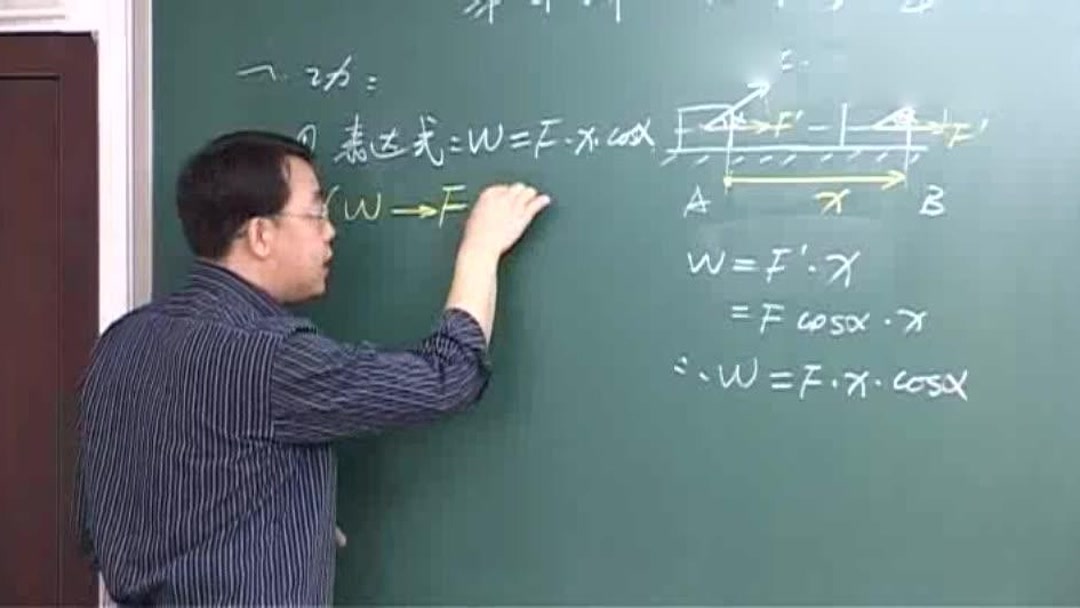 一、功：
① 表达式：W=F·x·cosα
(W→F
F
F'
F'
A x B
W=F'·x
=F cosα·x
∴W=F·x·cosα